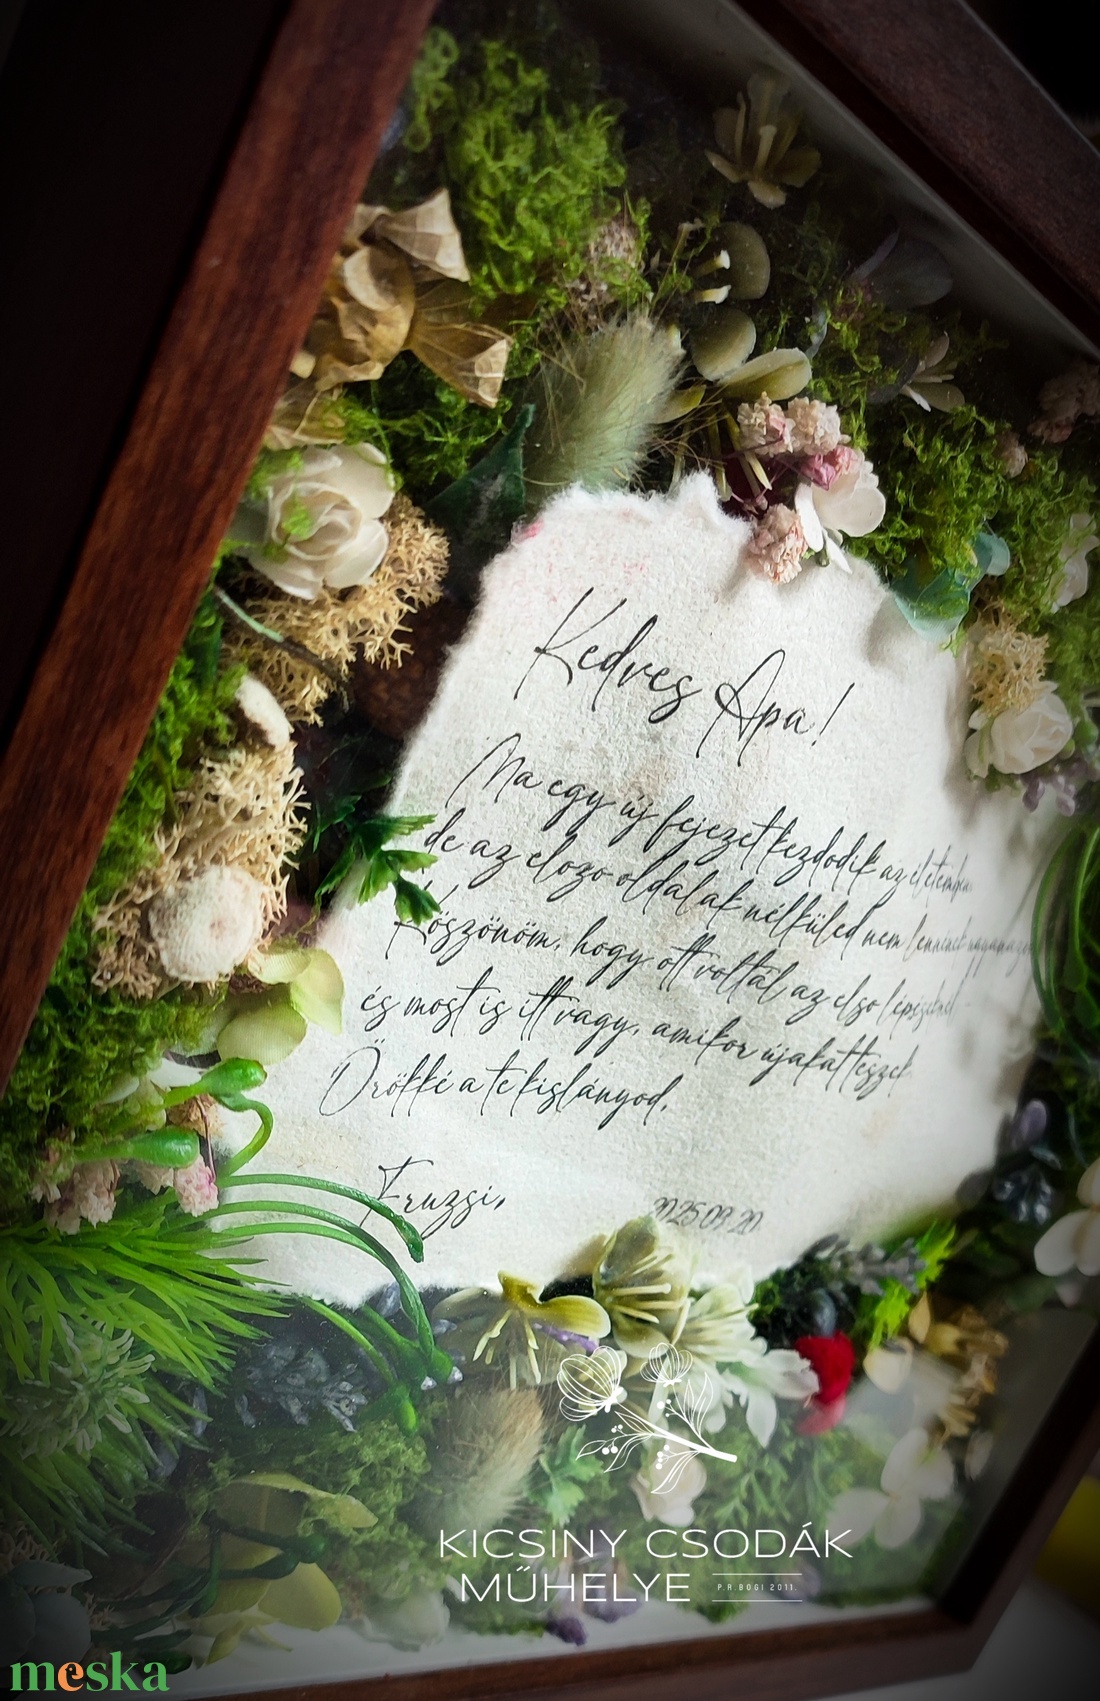 Kedves Apa!
Ma egy új fejezet kezdodik az életemben
de az elozo oldalak nélküled nem lennének ugyanazok
Köszönöm, hogy ott voltál az elso lépéseknél
és most is itt vagy, amikor újakat teszek
Örökké a te kislányod,
Fruzsi,
2025.09.20.
KICSINY CSODÁK
MŰHELYE
P.R.BOGI 2011.
meska